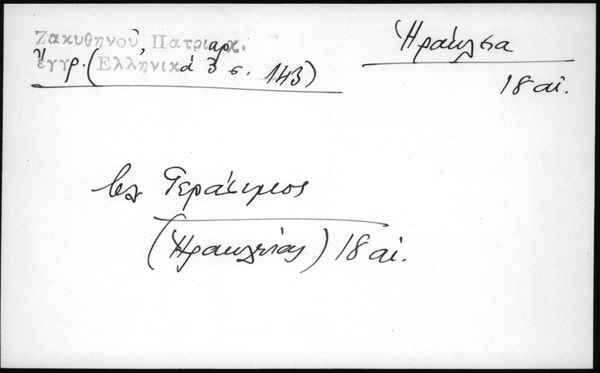 Ζακυθηνοῦ, Πατριαρχ.
ἔγγρ. (Ἑλληνικά 3 σ. 143)
Ἡράκλεια
18 αἰ.
βλ Γεράσιμος
(Ἡρακλείας) 18 αἰ.